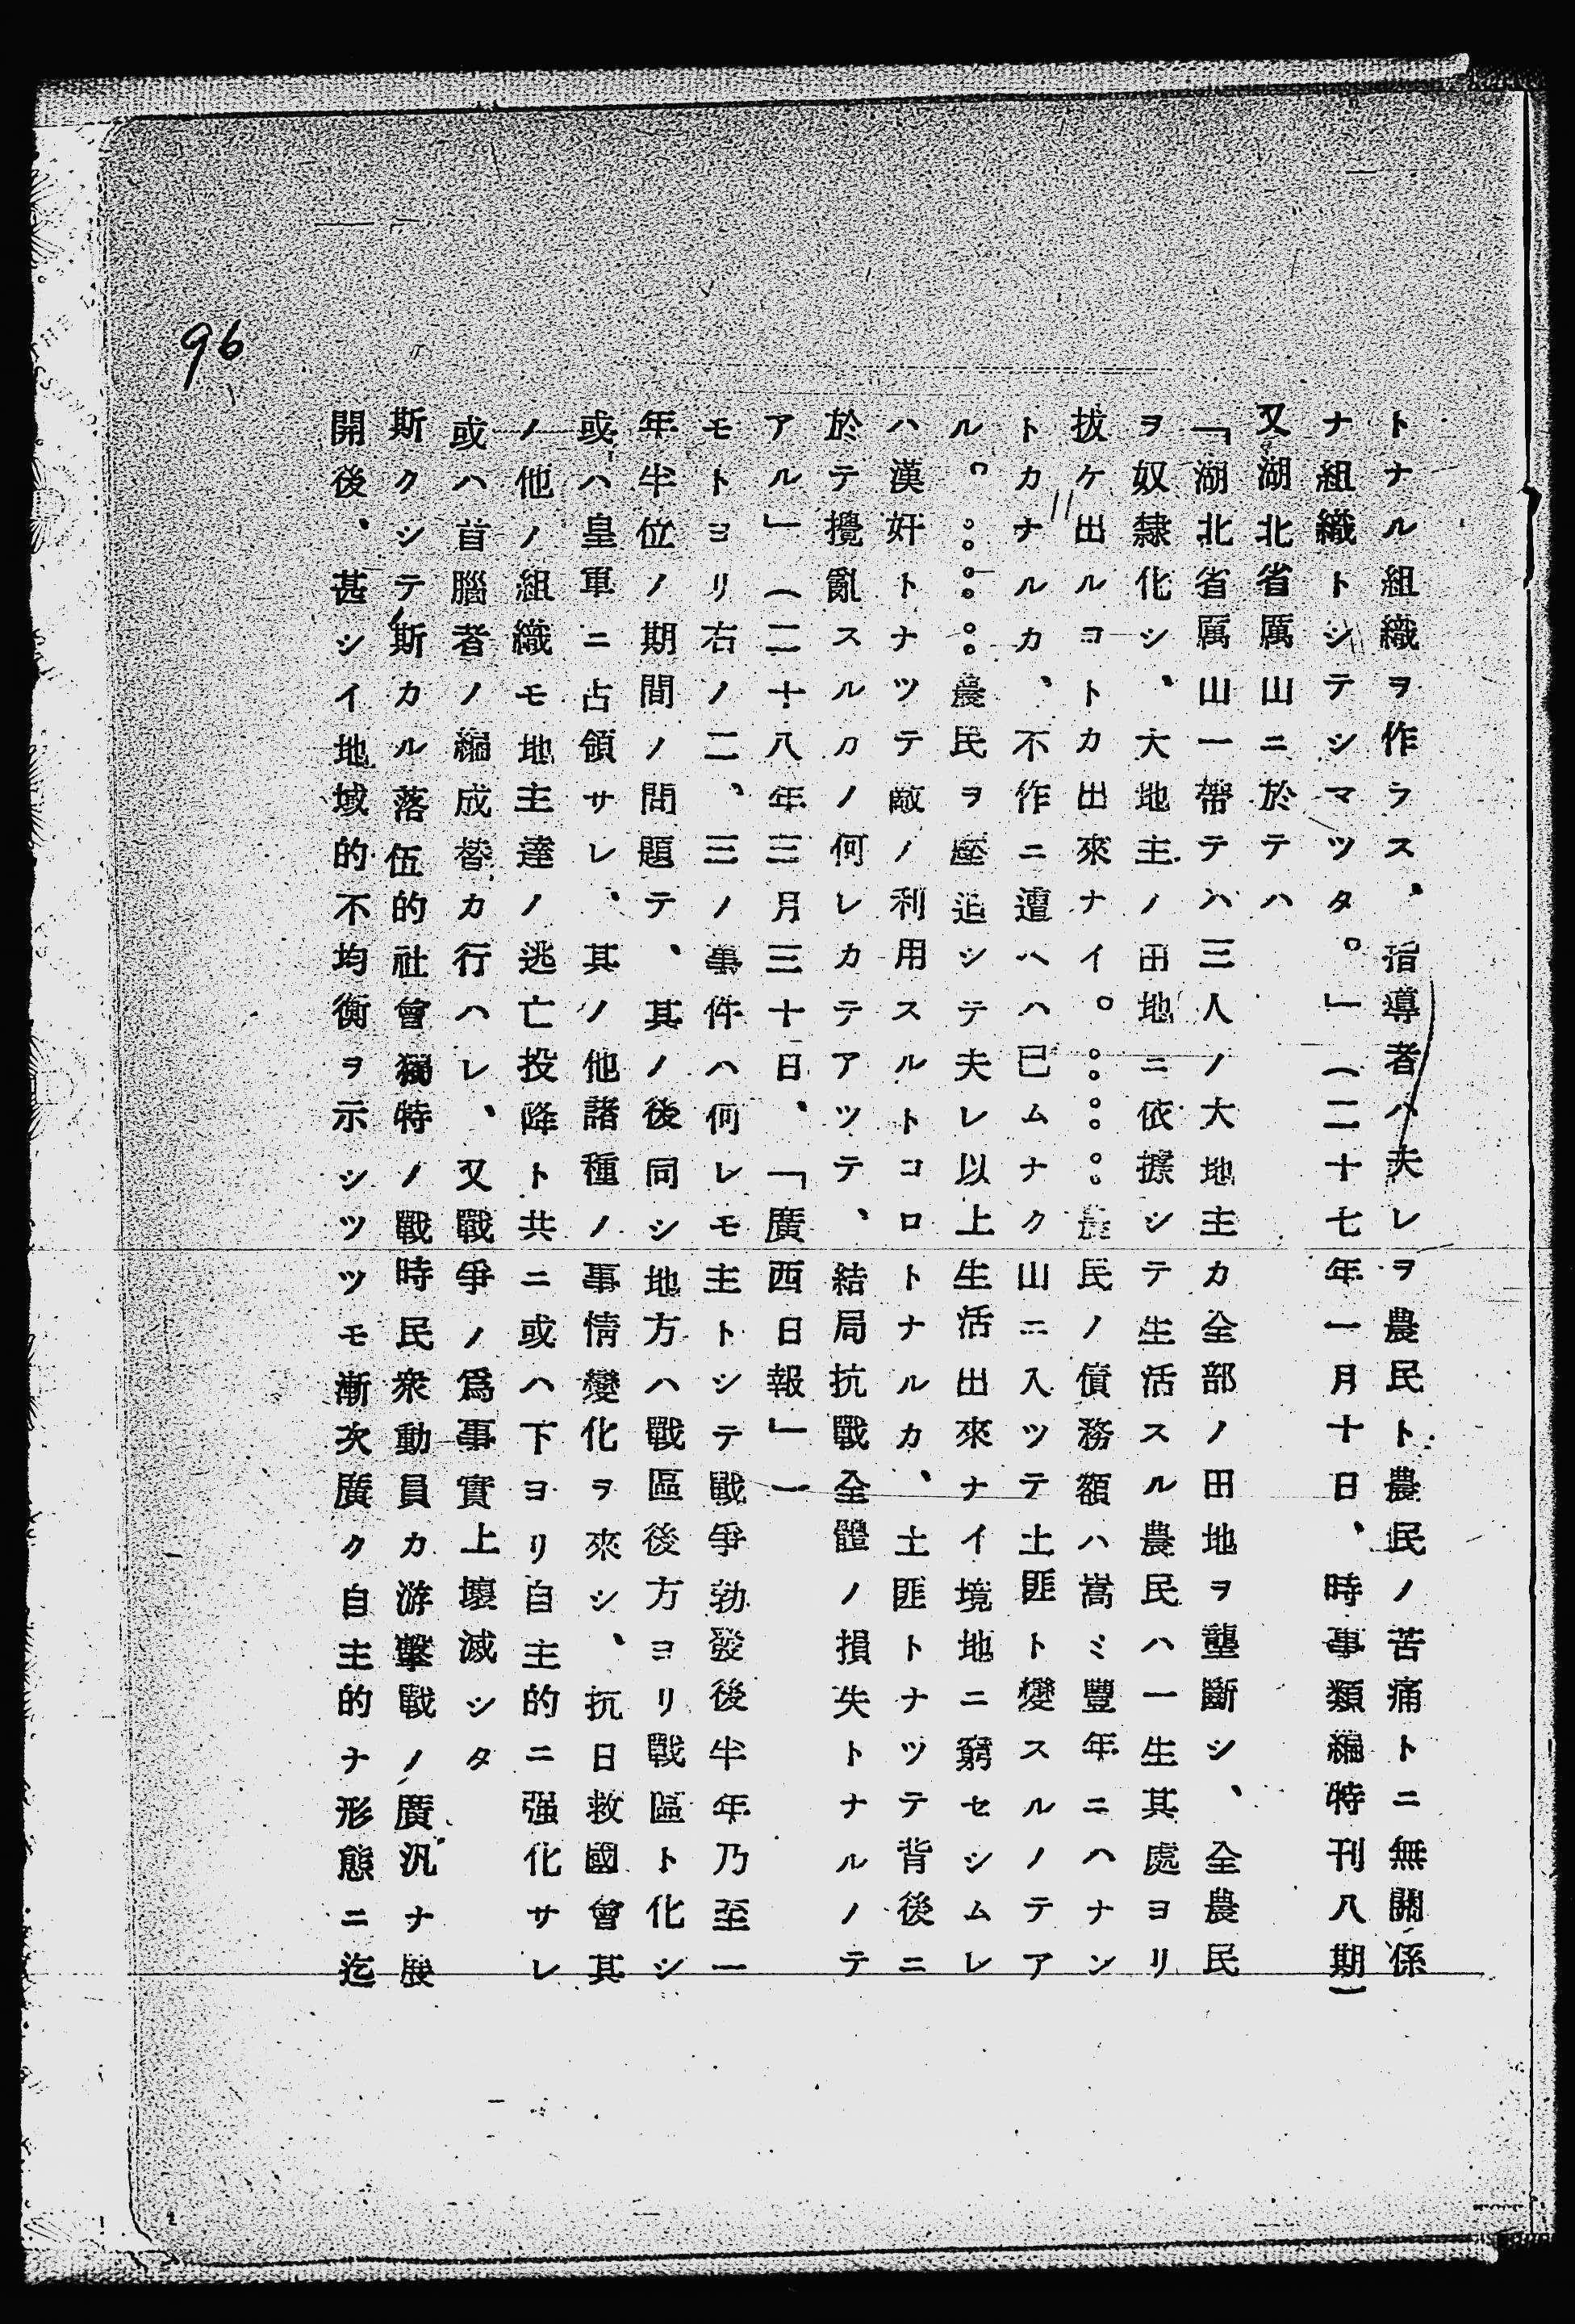 トナル組織ヲ作ラス、指導者ハ夫レヲ農民ト農民ノ苦痛トニ無關係
ナ組織トシテシマツタ。」（二十七年一月十日、時事類編特刊八期）
又湖北省厲山ニ於テハ
「湖北省厲山一帶テハ三人ノ大地主カ全部ノ田地ヲ壟斷シ、全農民
ヲ奴隸化シ、大地主ノ田地ニ依據シテ生活スル農民ハ一生其處ヨリ
拔ケ出ルコトカ出來ナイ。。。。。。。農民ノ債務額ハ嵩ミ豐年ニハナン
トカナルカ、不作ニ遭ハハ已ムナク山ニ入ツテ土匪ト變スルノテア
ル。。。。。。。農民ヲ壓迫シテ夫レ以上生活出來ナイ境地ニ窮セシムレ
ハ漢奸トナツテ敵ノ利用スルトコロトナルカ、土匪トナツテ背後ニ
於テ攪亂スルカノ何レカテアツテ、結局抗戰全體ノ損失トナルノテ
アル」（二十八年三月三十日、「廣西日報」一
モトヨリ右ノ二、三ノ事件ハ何レモ主トシテ戰爭勃發後半年乃至一
年半位ノ期間ノ問題テ、其ノ後同シ地方ハ戰區後方ヨリ戰區ト化シ
或ハ皇軍ニ占領サレ、其ノ他諸種ノ事情變化ヲ來シ、抗日救國會其
ノ他ノ組織モ地主達ノ逃亡投降ト共ニ或ハ下ヨリ自主的ニ强化サレ
或ハ首腦者ノ編成替カ行ハレ、又戰爭ノ爲事實上壞滅シタ
斯クシテ斯カル落伍的社會獨特ノ戰時民衆動員カ游擊戰ノ廣汎ナ展
開後、甚シイ地域的不均衡ヲ示シツツモ漸次廣ク自主的ナ形態ニ迄
96